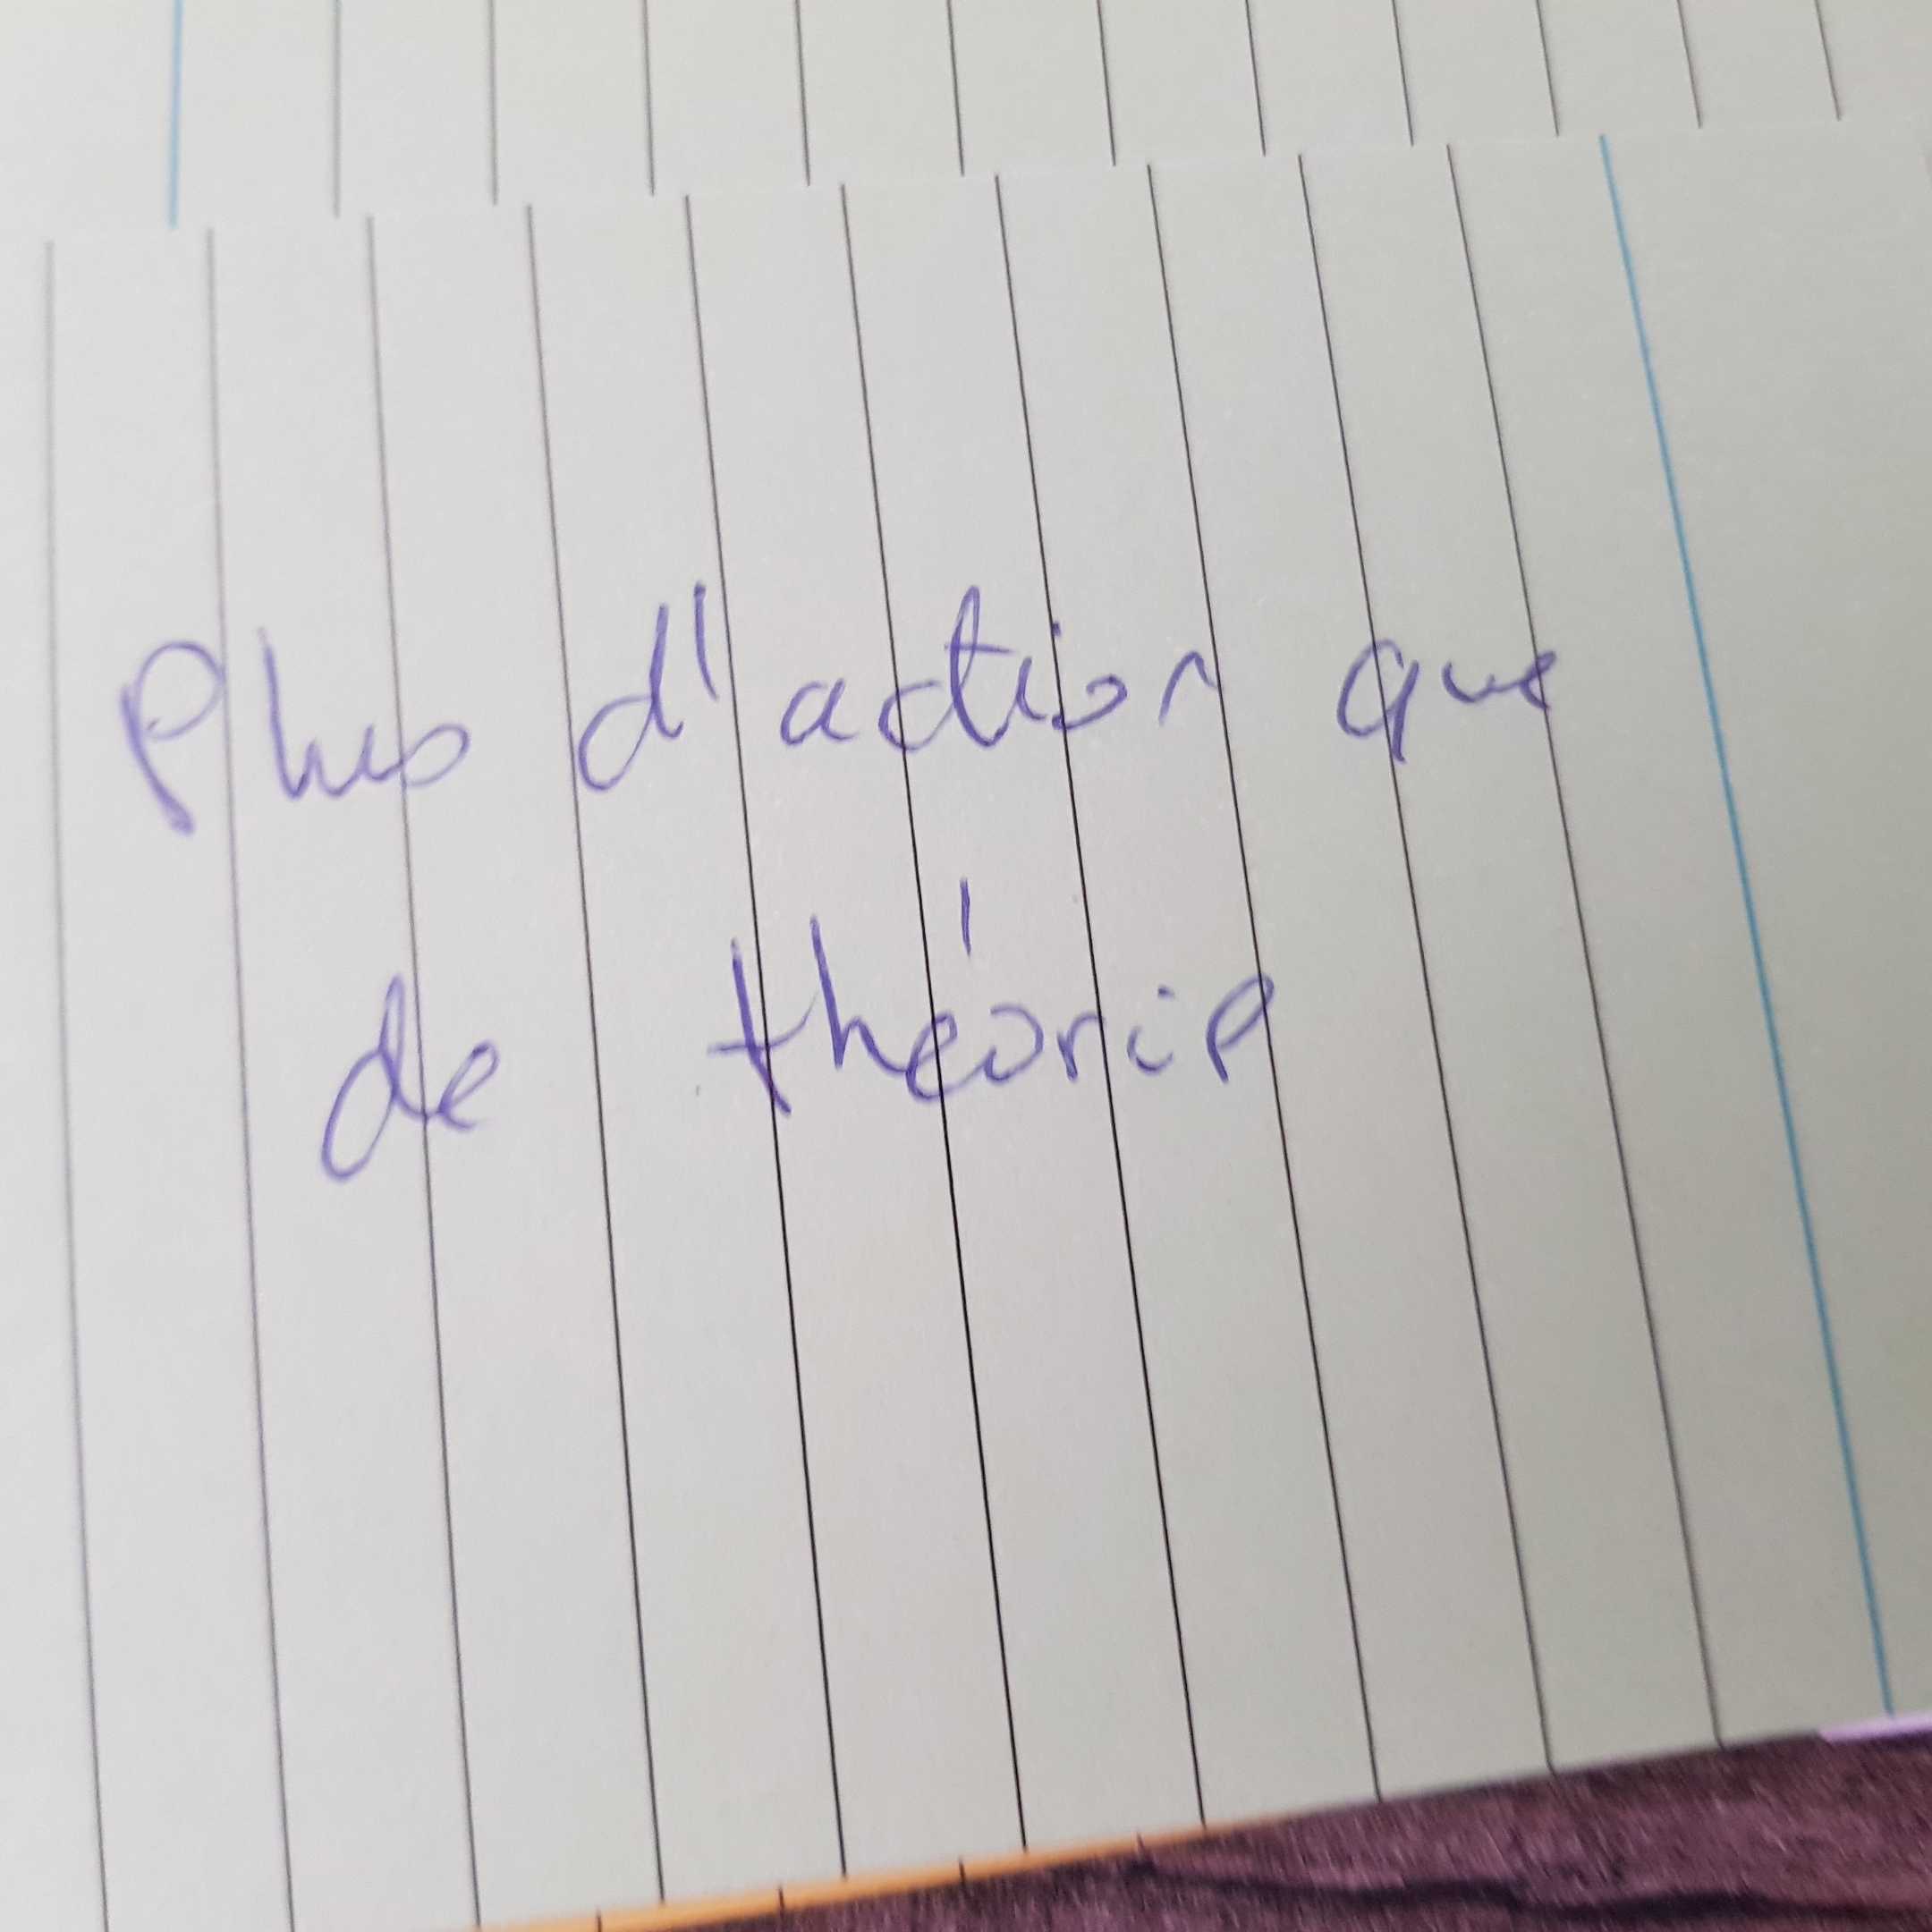 Plus d'action que
de théorie